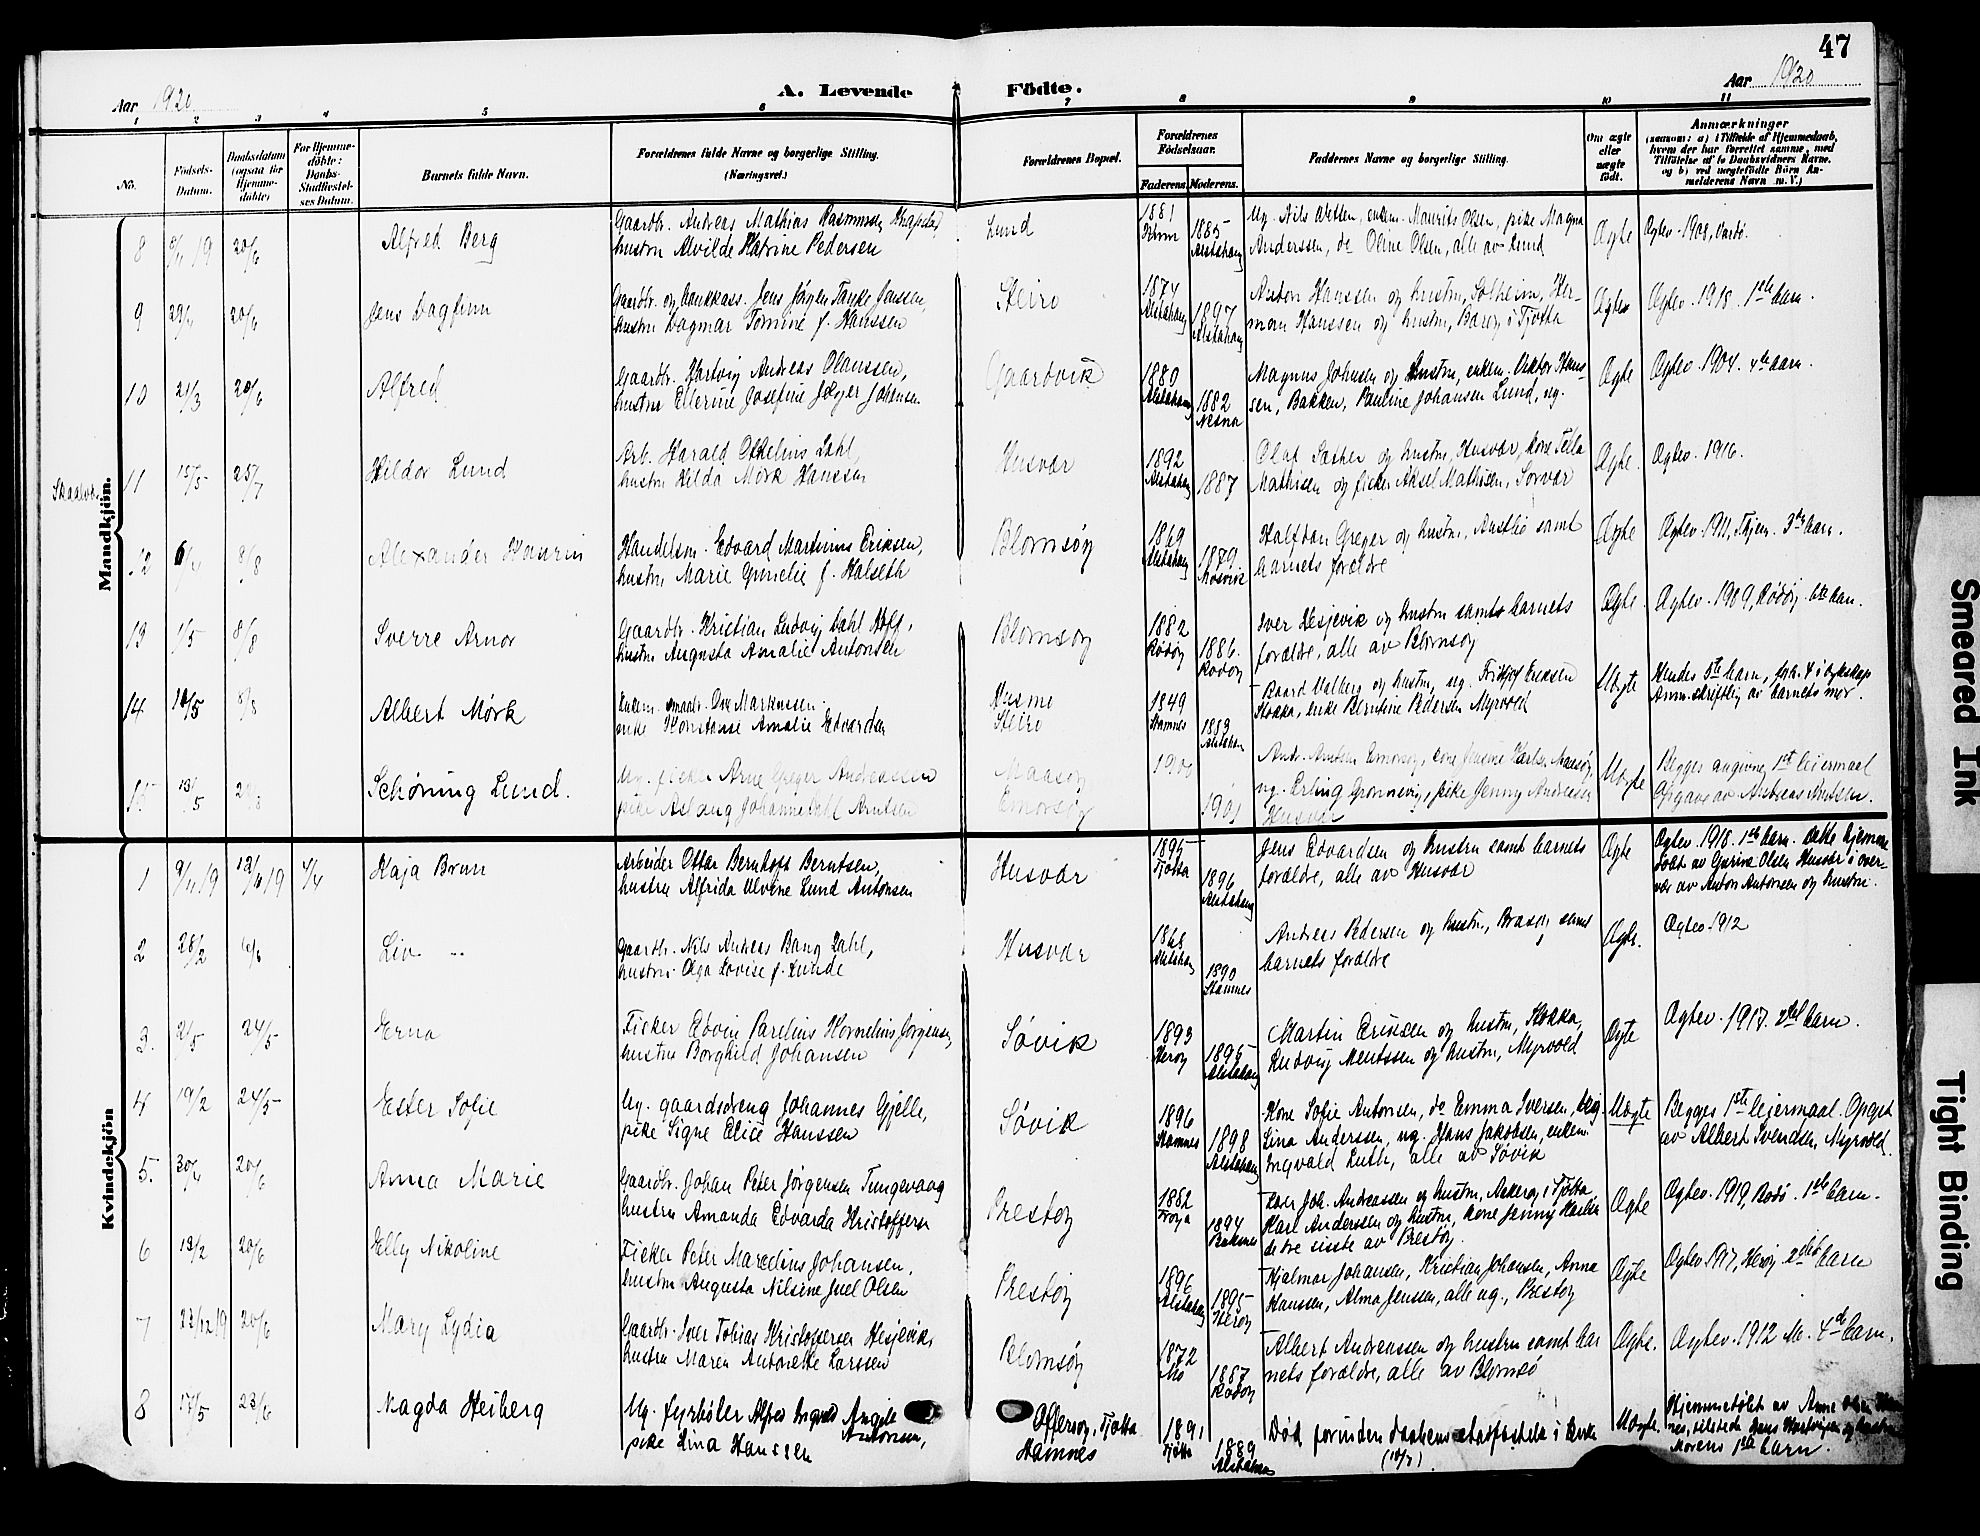 47
Aar 1920
A. Levende Födte.
Aar 1920
1 2 3 4 5 6 7 8 9 10 11
No.
Födsels-
Datum.
Daabsdatum
(ogsaa for
Hjemme-
döbte)
For Hjemme-
döbte:
Daabs-
Stadfæstel-
ses Datum.
Barnets fulde Navn.
Forældrenes fulde Navne og borgerlige Stilling.
(Næringsvei.)
Forældrenes Bopæl.
Forældrenes
Födselsaar.
Faderens. Moderens.
Faddernes Navne og borgerlige Stilling.
Om ægte
eller
uægte
födt.
Anmærkninger
(saasom: a) i Tilfælde af Hjemmedaab,
hvem der har forrettet samme, med
Tilföielse af to Daabsvidners Navne,
og b) ved uægtefödte Börn An-
melderens Navn m. V.)
Mandkjön.
8 8/11 19 20/6 Alfred Berg
Gaardbr. Andreas Mathias Rasmussen
hustru Alvilde Katrine Pedersen
Lund
1881
1885
Alstahaug
Ug. Nils Olsen, enkem. Maurits Olsen, pike Magna
Anderssen, do Oline Olsen, alle av Lund
Ægte
Ægtev. 1908, Vardö.
9 29/4 20/6 Jens Dagfinn
Gaardbr. og bankkass. Jens Jörgen Tanke Jenssen,
hustru Dagmar Tomine f. Hanssen
Steiro
1874
Alstahaug
1897
Alstahaug
Anton Hanssen og hustru, Solheim, Her-
man Hanssen og hustru, Baröy i Tjötta
Ægte
Ægtev. 1918. 1ste barn.
10 21/3 20/6 Alfred
Gaardbr. Hartvig Andreas Olaussen,
hustru Ellerine Josefine Jæger Johansen
Gaardvik
1880
Alstahaug
1882
Nesna
Magnus Johnsen og hustru, enkem. Viktor Hans-
sen, Bakken, Pauline Johansen Lund, ug.
Ægte
Ægtev. 1904. 4de barn.
11 15/5 25/7 Hildor Lund
Arb. Harald Othelius Dahl,
hustru Hilda Mörk Hanssen
Husvær
1892
Alstahaug
1887
Olaf Sæther og hustru, Husvær, kone Tella
Mathisen og fisker Aksel Mathisen, Sorvær
Ægte.
Ægtev. 1916.
12 6/4 8/8 Alexander Haurin
Handelsm. Edvard Martinius Eriksen,
hustru Marie f. Halseth
Blomsöy
1869
Alstahaug
1879
Halfdan Greger og hustru, Austbö samt
barnets forældre
Ægte
Ægtev. 1911, Thjem. 3die barn.
13 1/5 8/8 Sverre Arnor
Gaardbr. Kristian Ludvig Dahl Hoff,
hustru Augusta Amalie Antonsen
Blomsöy
1882
Rödöy
1886.
Rödöy
Iver Hesjevik og hustru samt barnets
forældre, alle av Blomsöy
Ægte.
Ægtev. 1909, Rödöy. 6te barn.
14 10/5 8/8 Albert Mörk
Enkem. smaabr. Ove Markussen.
enke Konstanse Amalie Edvardsen
Husmo
Steiro
1849
Stamnes
1883
Alstahaug
Baard Valberg og hustru, ug. Fritjof Eriksen
Stokka, enke Berntine Pedersen Myrvold
Uægte
Hendes 5te barn, derav 4 i egteskap
Anm. skriftlig av barnets mor.
15 13/5 22/8 Schöning Lund.
Ug. fisker Arne Greger Andreassen
pike Aslaug Johanne Dahl Arntsen
Maasöy
Emorsöy
1900
1901
ug. Erling Grönnevig, pike Jenny Andreassen
Husvær
Uægte
Begges angivne 1ste leiermaal
Opgave av Andreas Arntsen.
Kvindekjön
1 9/11 19 13/11 19 4/4 Kaja Brun
Arbeider Ottar Bernhoft Berntsen,
hustru Alfrida Alvine Lund Antonsen
Husvær
1895
Tjötta
1896
Alstahaug
Jens Edvardsen og hustru samt barnets
forældre, alle av Husvær
Ægte
Ægtev. 1918. 1ste barn. Döbt hjemme
döbt av Gurine Olsen Husvær i over-
vær av Anton Antonsen og hustru.
2 28/2 6/6 Liv
Gaardbr. Nils Andreas Bang Dahl,
hustru Olga Lovise f. Lunde
Husvær
1868
Alstahaug
1890
Stamnes
Andreas Pedersen og hustru, Brasöy samt
barnets forældre
Ægte.
Ægtev. 1912
3. 2/5 24/5 Erna
Fisker Edvin Parelius Kornelius Jörgensen,
hustru Borghild Johansen
Sövik
1893
Heröy
1895
Alstahaug
Martin Eriksen og hustru, Stokka,
Ludvig Mentssen og hustru, Myrvold
Ægte
Ægtev. 1917. 2det barn.
4 19/2 24/5 Ester Sofie
Ug. gaardsdreng Johannes Gjelle,
pike Signe Elise Hanssen
Sövik
1896
Stamnes
1898
Alstahaug
Kone Sofie Antonsen, do Emma Iversen, pig
Lina Anderssen, ug. Hans Jakobsen, enkem.
Ingvald Luth, alle av Sövik
Uægte
Begges 1ste leiermaal. Opgit
av Albert Svendsen, Myrvold.
5. 30/4 20/6 Anna Marie
Gaardbr. Johan Peter Jörgensen Tungevaag
hustru Amanda Edvarda Kristoffersen
Prestöy
1882
1894
Joh. Andreassen og hustru, Akeröy i Tjötta,
Karl Anderssen og hustru, kone Jenny Karlsen
de tre siste av Prestöy.
Ægte
Ægtev. 1919, Bodö. 1ste barn.
6 13/2 20/6 Elly Nikoline
Fisker Peter Marcelius Johansen,
hustru Augusta Nilsine Juel Olsen
Prestöy
1896
Alstahaug
1895
Heröy
Hjalmar Johansen, Kristian Johansen, Anna
Hanssen, Alma Jenssen, alle ug., Prestöy
Ægte
Ægtev. 1917, Heröy. 2det barn
7 23/12 19 20/6 Mary Lydia
Gaardbr. Iver Tobias Kristoffersen Hesjevik,
hustru Maren Antonette Larssen
Blomsöy
1872
Mo
1887
Rödöy
Albert Andreassen og hustru samt bar
nets forældre, alle av Blomsö
Ægte.
Ægtev. 1912 Mo. 4de barn.
8 17/5 23/6 Magda Heiberg
Ug. fyrböter Alfred Ingvald Angell
Antonsen,
pike Lina Hanssen
Offersöy, Tjötta
Hamnes
1891
Tjötta
1889
Alstahaug
Död forinden daabens stadfæstelse i kirke
(10/7)
Uægte.
Hjemmedöbt av Anne Olsen
Morens 1ste barn.
Smeared Ink
Tight Binding